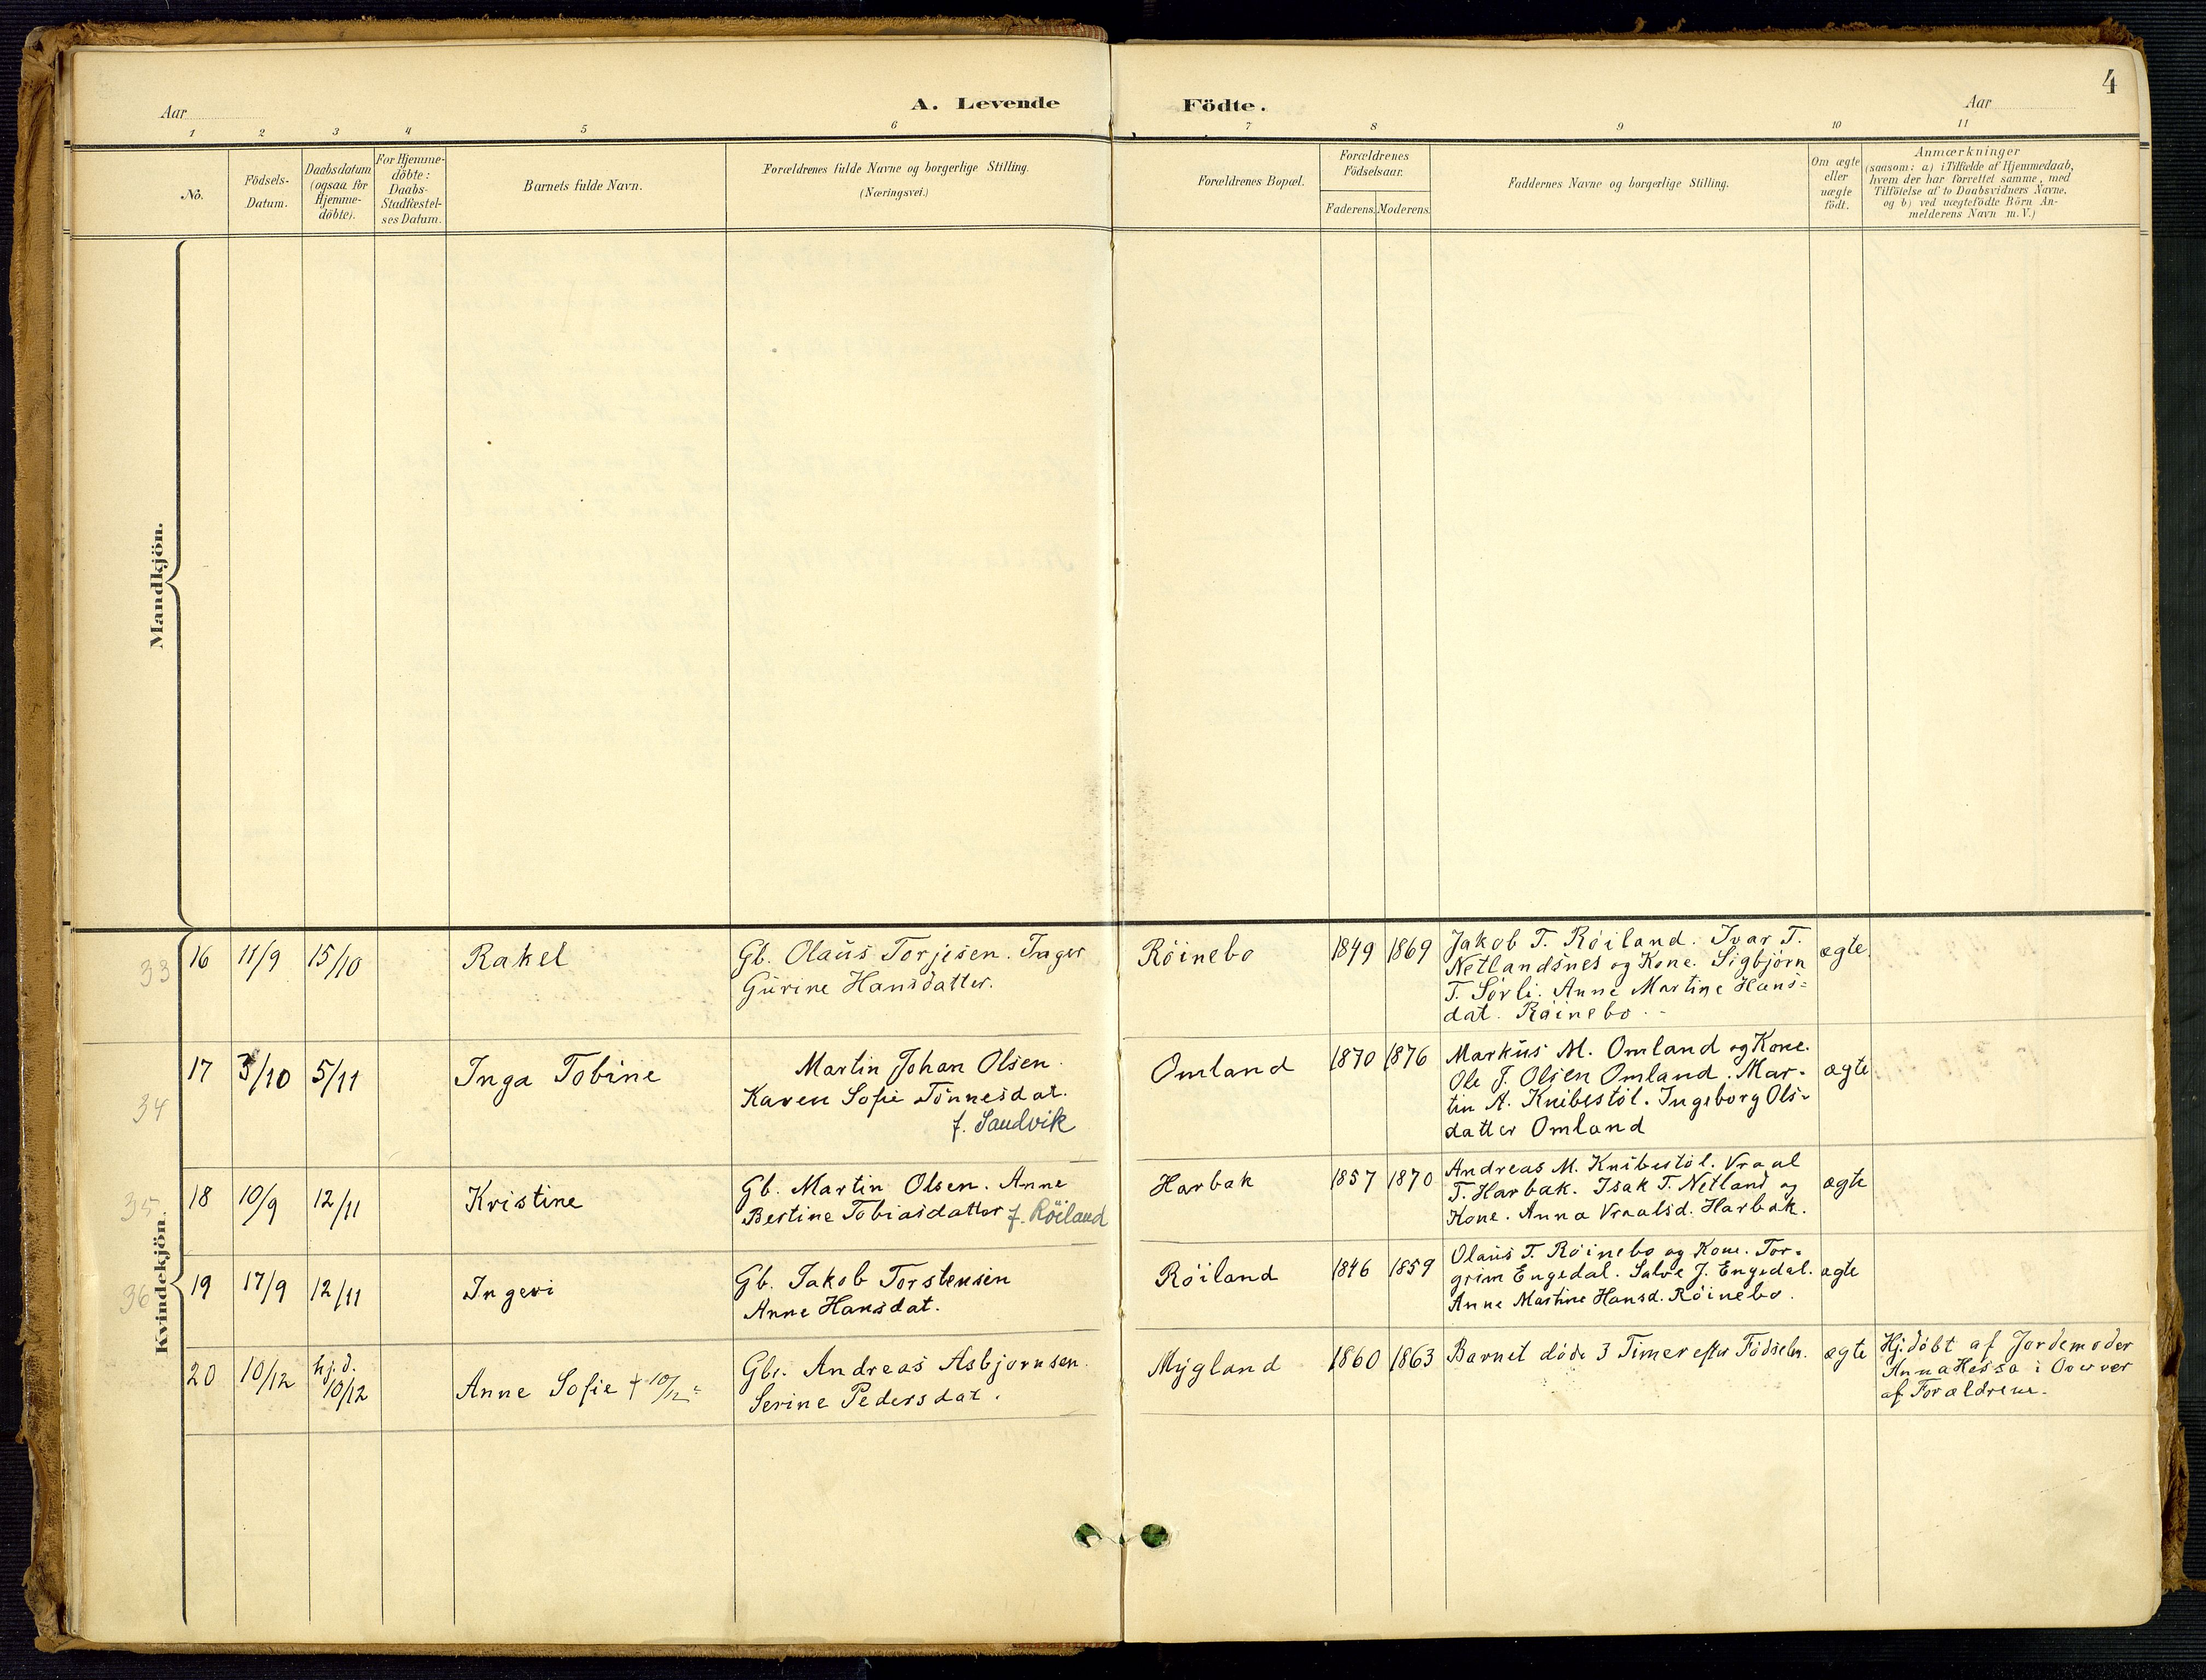 4
Aar
A. Levende Födte.
Aar
1 2 3 4 5 6 7 8 9 10 11
No.
Födsels-
Datum.
Daabsdatum
(ogsaa for
Hjemme-
döbte).
For Hjemme-
döbte:
Daabs-
Stadfæstel-
ses Datum.
Barnets fulde Navn.
Forældrenes fulde Navne og borgerlige Stilling.
(Næringsvei.)
Forældrenes Bopæl.
Forældrenes
Födselsaar.
Faderens. Moderens.
Faddernes Navne og borgerlige Stilling.
Om ægte
eller
uægte
födt.
Anmærkninger
(saasom: a) i Tilfælde af Hjemmedaab,
hvem der har forrettet samme, med
Tilföielse af to Daabsvidners Navne,
og b) ved uægtefödte Börn An-
melderens Navn m.V.)
Mandkjön.
Kvindekjön.
33
16 11/9 15/10
Rakel
Gb. Olaus Torjesen. Inger
Gurine Hansdatter.
Röinebo
1849 1869
Jakob T. Röiland. Ivar T.
Netlandsnes og Kone. Sigbjörn
T. Sörli. Anne Martine Hans=
dat. Röinebo.
ægte
34
17 3/10 5/11
Inga Tobine
Martin Johan Olsen.
Karen Sofie Tönnesdat.
f. Sandvik
Omland
1870 1876
Markus M. Omland og Kone.
Ole J. Olsen Omland. Mar-
tin A. Knibestöl. Ingeborg Ols-
datter Omland
ægte
35
18 10/9 12/11
Kristine
Gb. Martin Olsen. Anne
Bertine Tobiasdatter f. Röiland
Harbak
1857 1870
Andreas M. Knibestöl. Vraal
T. Harbak. Isak T. Netland og
Kone. Anna Vraalsd. Harbak.
ægte
36
19 17/9 12/11
Ingevi
Gb. Jakob Torstensen
Anne Hansdat.
Röiland
1846 1859
Olaus T. Röinebo og Kone. Tor-
grim Engedal. Salve J. Engedal.
Anne Martine Hansd. Röinebo.
ægte
20 10/12 hj. d. 10/12
Anne Sofie † 10/12
Gbr. Andreas Asbjørnsen.
Serine Pedersdat.
Mygland
1860 1863
Barnet döde 3 Timer efter Födselen.
ægte
Hj. döbt af Jordemoder
Anna Hessa i Overvær
af Forældrene.